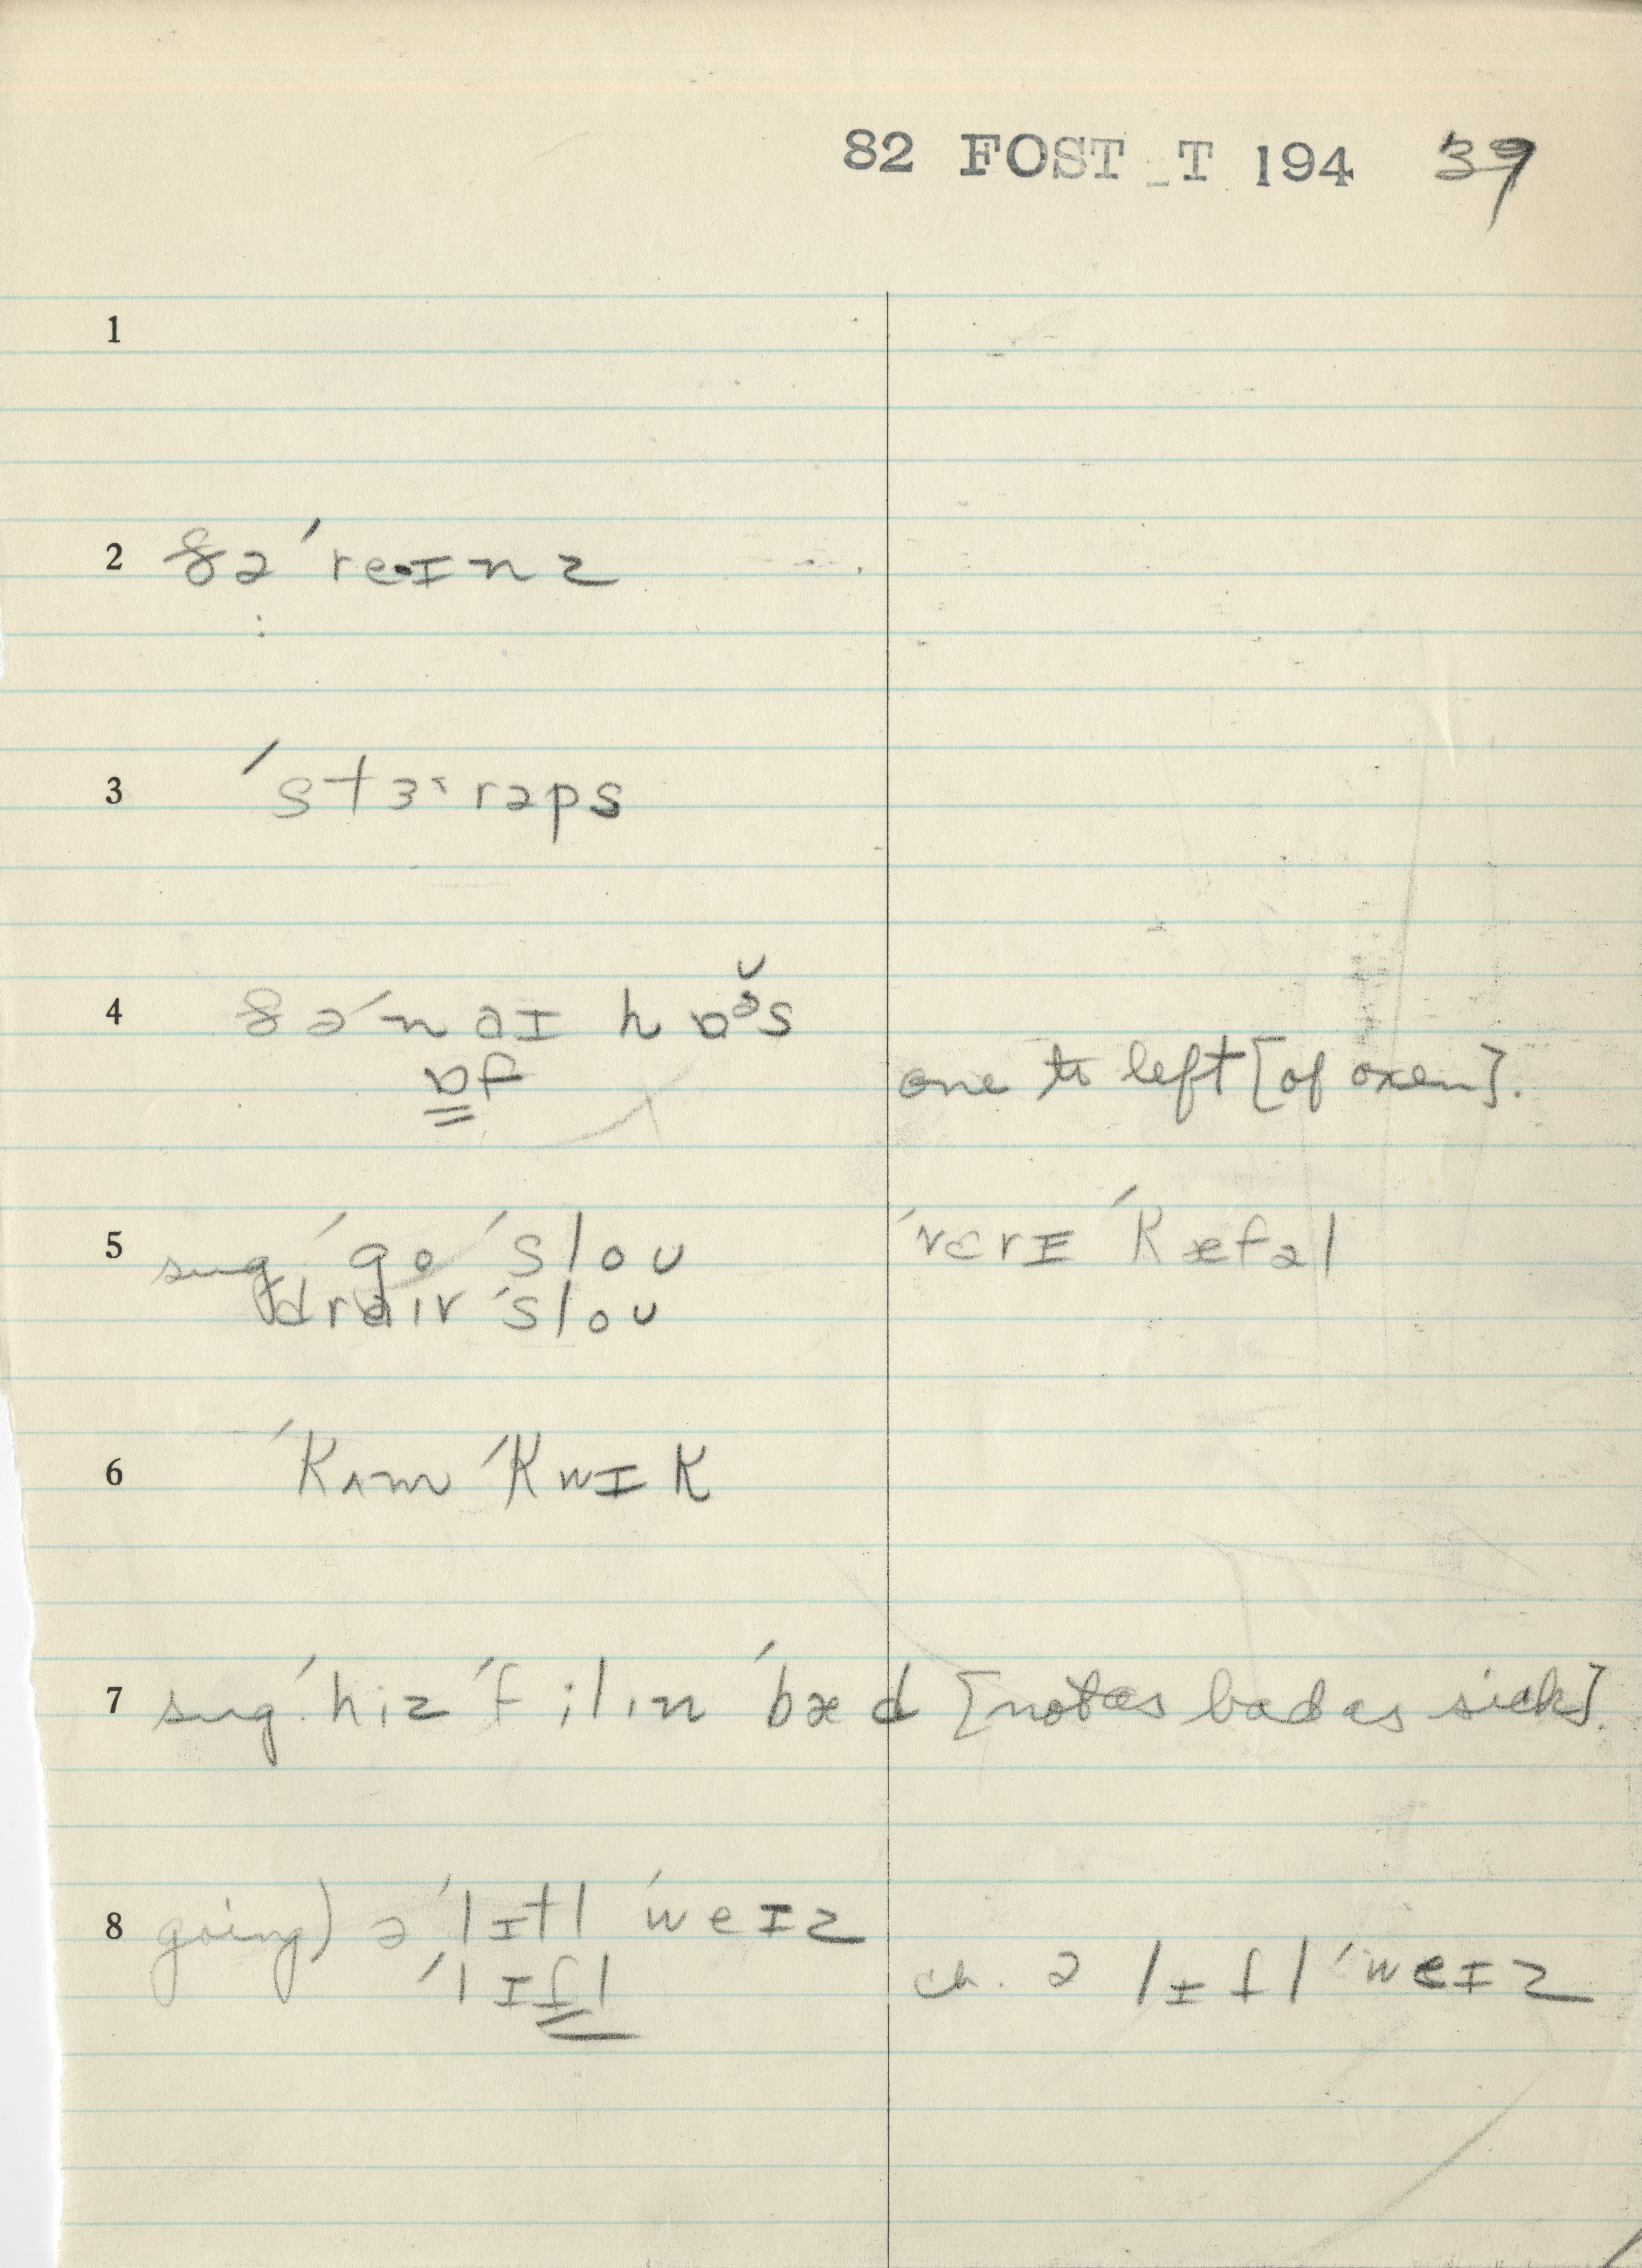 82 FOST_T 194 39
1
2 ðə ˈre·ɪnz
3 ˈstɝrəps
4 ðəˈnaɪ hɒə̆s
ɒf one to left [of oxen].
5 sug. ˈgo ˈsloʊ ˈvɛrɪ ˈkɛfəl
draɪv ˈsloʊ
6 ˈkʌm ˈkwɪk
7 sug. ˈhiz ˈfilɪn ˈbæd [not as bad as sick].
8 going) ə ˈlɪtl ˈweɪz
ˈlɪfl ch. ə lɪfl ˈweɪz